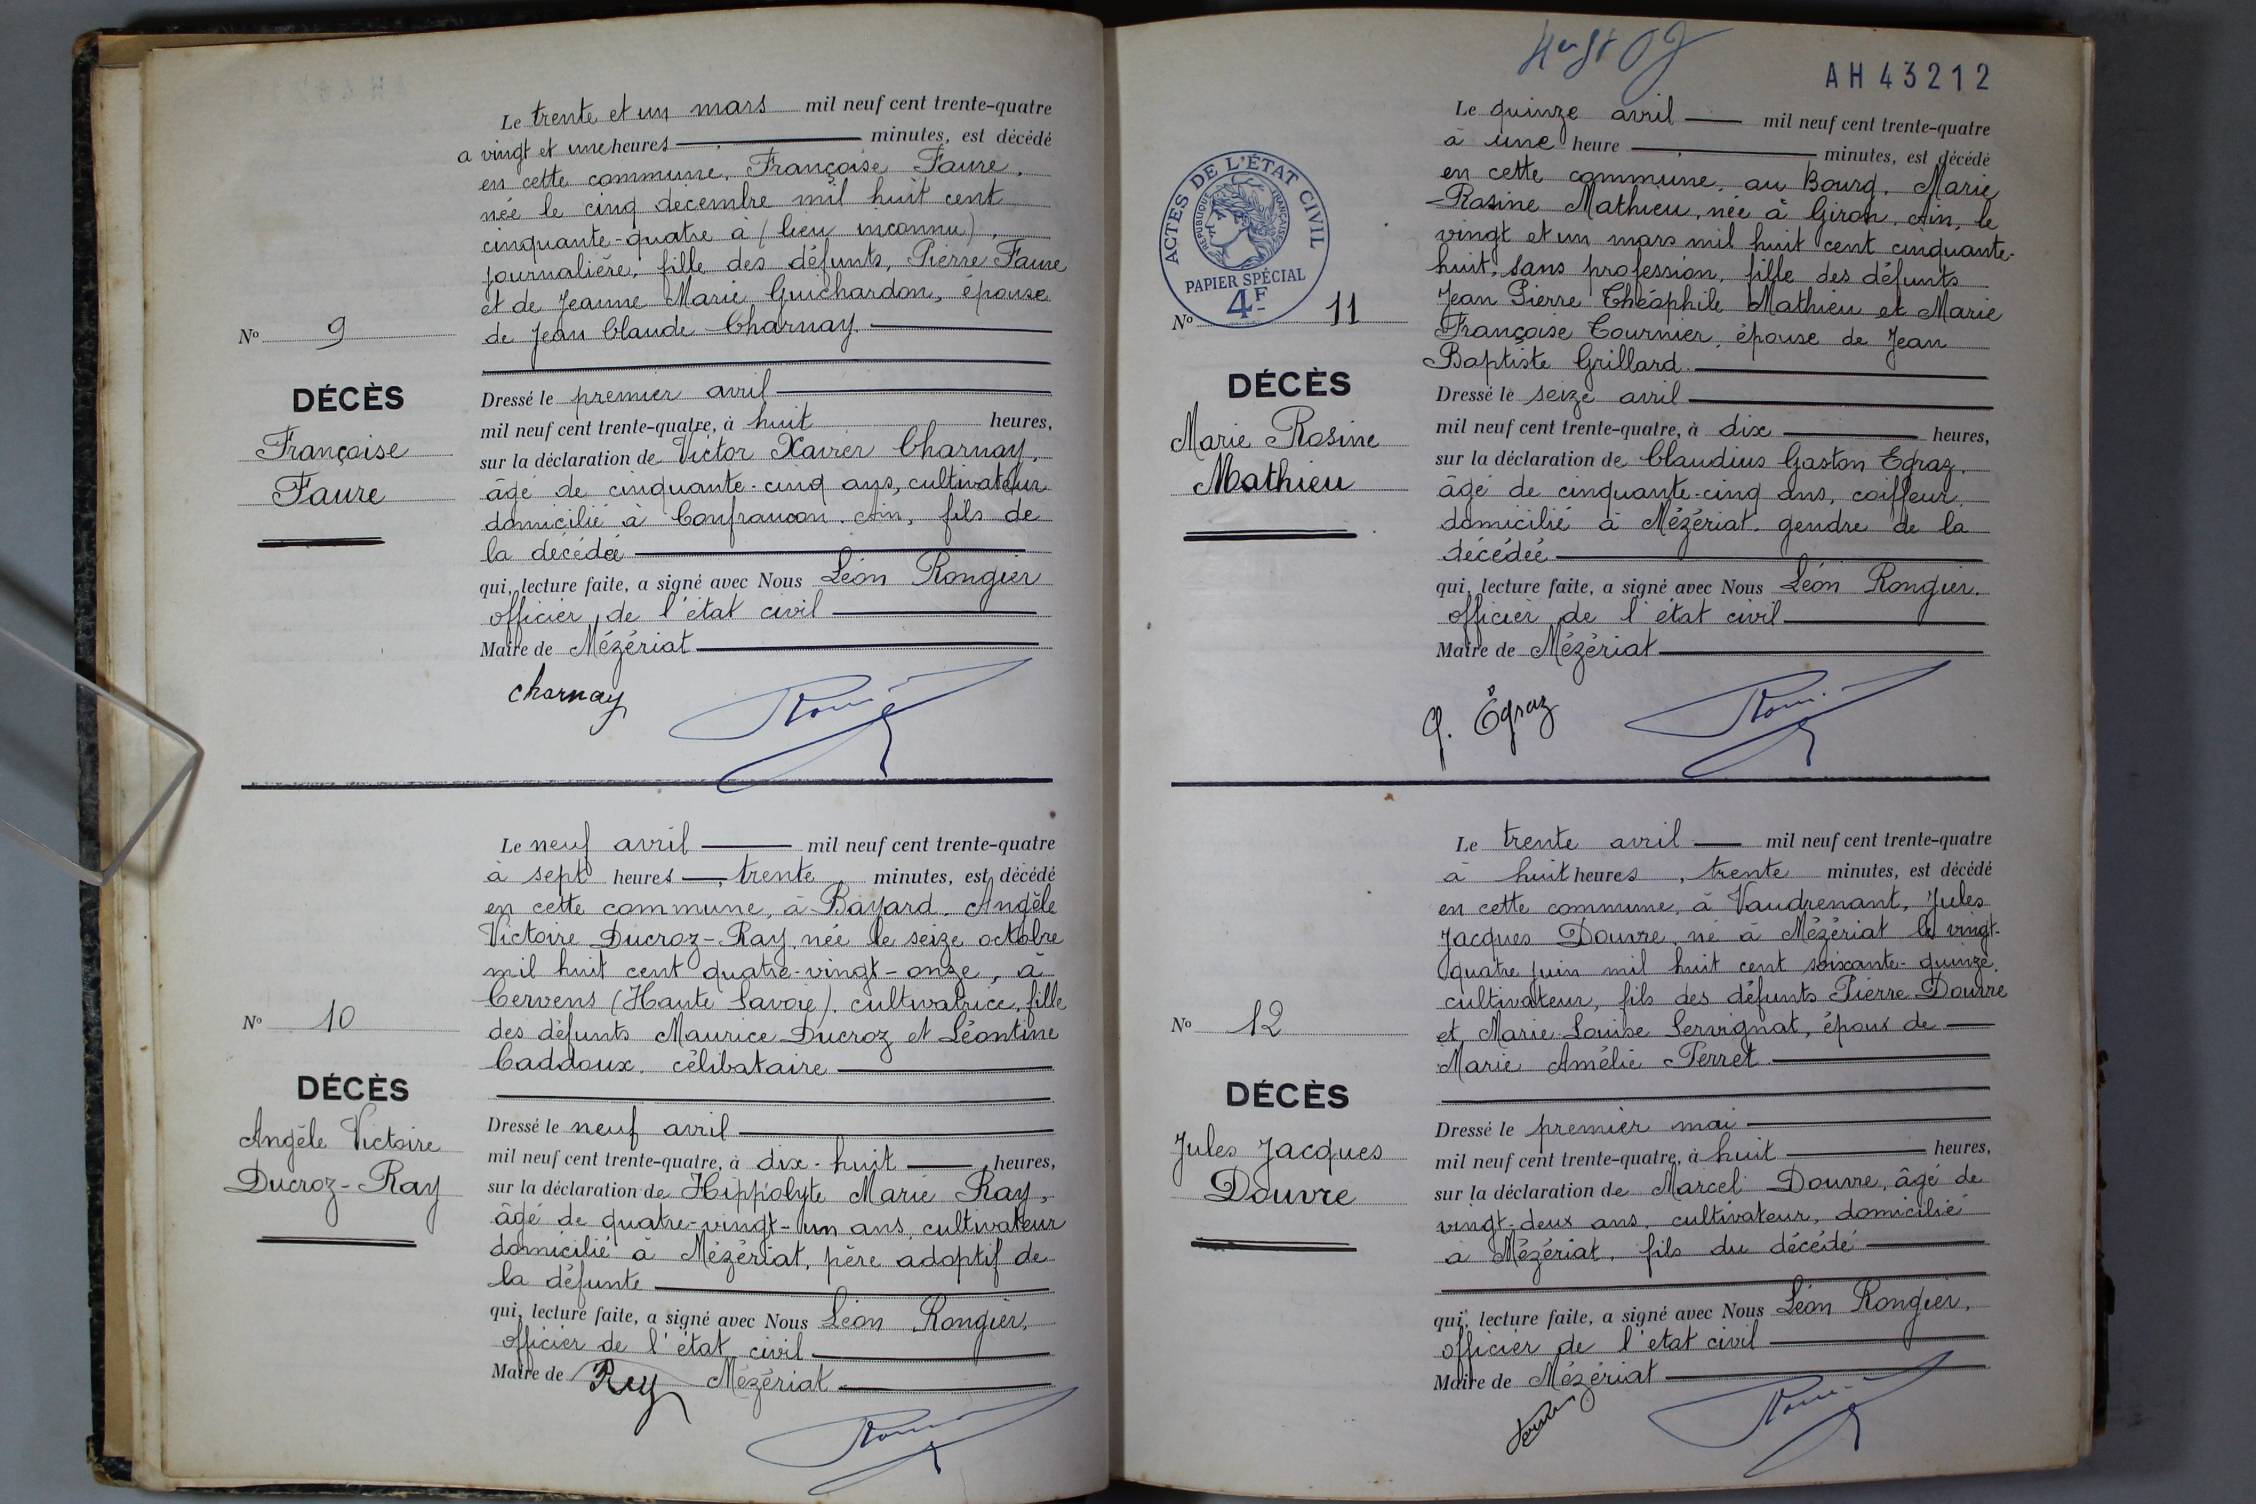 Le trente et un mars mil neuf cent trente-quatre
a vingt et une heures minutes, est décédé
en cette commune, Françoise Faure,
née le cinq decembre mil huit cent
cinquante-quatre à (lieu inconnu),
journalière, fille des défunts, Pierre Faure
et de Jeanne Marie Guichardon, épouse
de Jean Claude Charnay.
No 9
DÉCÈS
Françoise
Faure
Dressé le premier avril
mil neuf cent trente-quatre, à huit heures,
sur la déclaration de Victor Xavier Charnay,
âgé de cinquante-cinq ans, cultivateur
domicilié à Confrançon, Ain, fils de
la décédée
qui, lecture faite, a signé avec Nous Léon Rongier
officier de l'état civil
Maire de Mézériat
Charnay
Le neuf avril mil neuf cent trente-quatre
à sept heures, trente minutes, est décédé
en cette commune, à Bayard, Angèle
Victoire Ducroz-Ray, née le seize octobre
mil huit cent quatre-vingt-onze, à
Cervens (Haute Savoie), cultivatrice, fille
des défunts Maurice Ducroz et Léontine
Caddoux, célibataire
No 10
DÉCÈS
Angèle Victoire
Ducroz-Ray
Dressé le neuf avril
mil neuf cent trente-quatre, à dix-huit heures,
sur la déclaration de Hippolyte Marie Ray,
âgé de quatre-vingt-un ans, cultivateur
domicilié à Mézériat, père adoptif de
la défunte
qui, lecture faite, a signé avec Nous Léon Rongier,
officier de l'état civil
Maire de Mézériat
Rey
AH 43212
ACTES DE L'ÉTAT CIVIL
RÉPUBLIQUE FRANÇAISE
PAPIER SPÉCIAL
4F
Le quinze avril mil neuf cent trente-quatre
à une heure minutes, est décédé
en cette commune, au Bourg, Marie
Rosine Mathieu, née à Giron, Ain, le
vingt et un mars mil huit cent cinquante-
huit, sans profession, fille des défunts
Jean Pierre Théophile Mathieu et Marie
Françoise Tournier, épouse de Jean
Baptiste Grillard.
No 11
DÉCÈS
Marie Rosine
Mathieu
Dressé le seize avril
mil neuf cent trente-quatre, à dix heures,
sur la déclaration de Claudius Gaston Egraz,
âgé de cinquante-cinq ans, coiffeur,
domicilié à Mézériat, gendre de la
décédée
qui, lecture faite, a signé avec Nous Léon Rongier,
officier de l'état civil
Maire de Mézériat
G. Egraz
Le trente avril mil neuf cent trente-quatre
à huit heures, trente minutes, est décédé
en cette commune, à Vaudrenant, Jules
Jacques Douvre, né à Mézériat le vingt-
quatre juin mil huit cent soixante-quinze,
cultivateur, fils des défunts Pierre Douvre
et Marie Louise Servignat, époux de
Marie Amélie Perret
No 12
DÉCÈS
Jules Jacques
Douvre
Dressé le premier mai
mil neuf cent trente-quatre, à huit heures,
sur la déclaration de Marcel Douvre, âgé de
vingt-deux ans, cultivateur, domicilié
à Mézériat, fils du décédé
qui, lecture faite, a signé avec Nous Léon Rongier,
officier de l'état civil
Maire de Mézériat